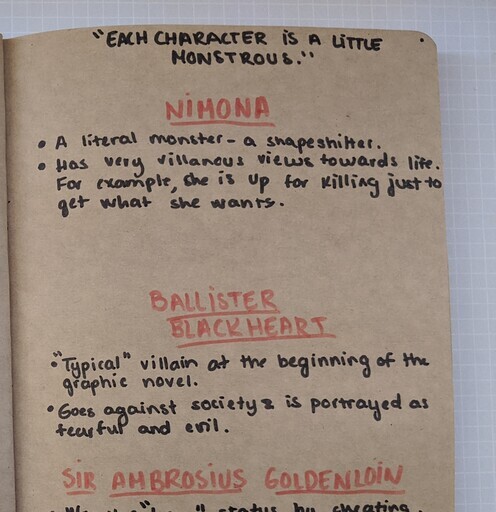 "EACH CHARACTER IS A LITTLE
MONSTROUS."
NIMONA
• A literal monster - a shapeshifter.
• Has very villanous views towards life.
For example, she is up for killing just to
get what she wants.
BALLISTER
BLACKHEART
• "Typical" villain at the beginning of the
graphic novel.
• Goes against society & is portrayed as
fearful and evil.
SIR AMBROSIUS GOLDENLOIN
status by cheating.